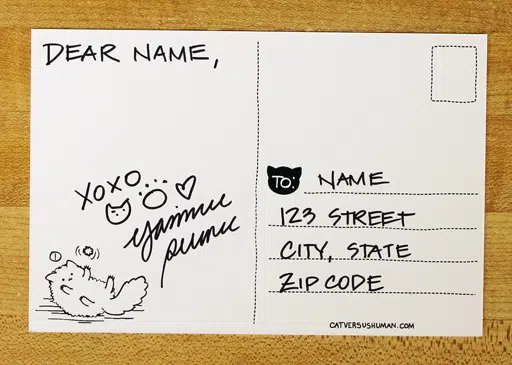 DEAR NAME,
XOXO
TO: NAME
123 STREET
CITY, STATE
ZIP CODE
CATVERSUSHUMAN.COM